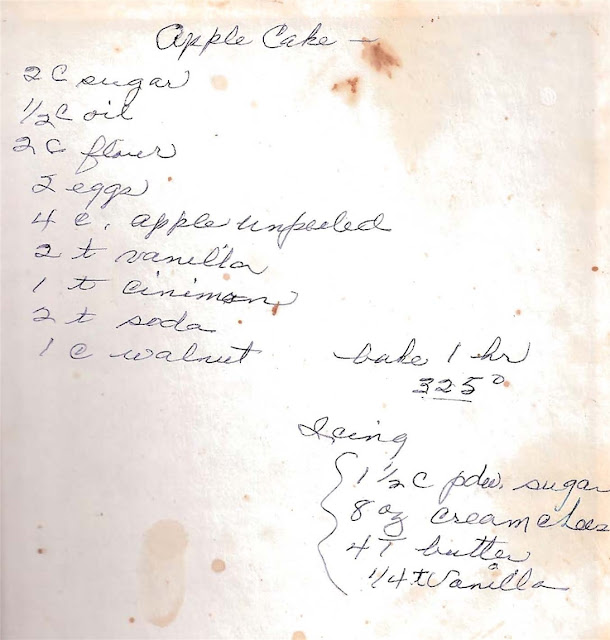 Apple Cake —
2 C sugar
1/2 C oil
2 C flour
2 eggs
4 c. apple unpeeled
2 t vanilla
1 t cinimon
2 t soda
1 c walnut
bake 1 hr
325°
Icing
1 1/2 C pdw. sugar
8 oz cream chees
4 T butter
1/4 t Vanilla